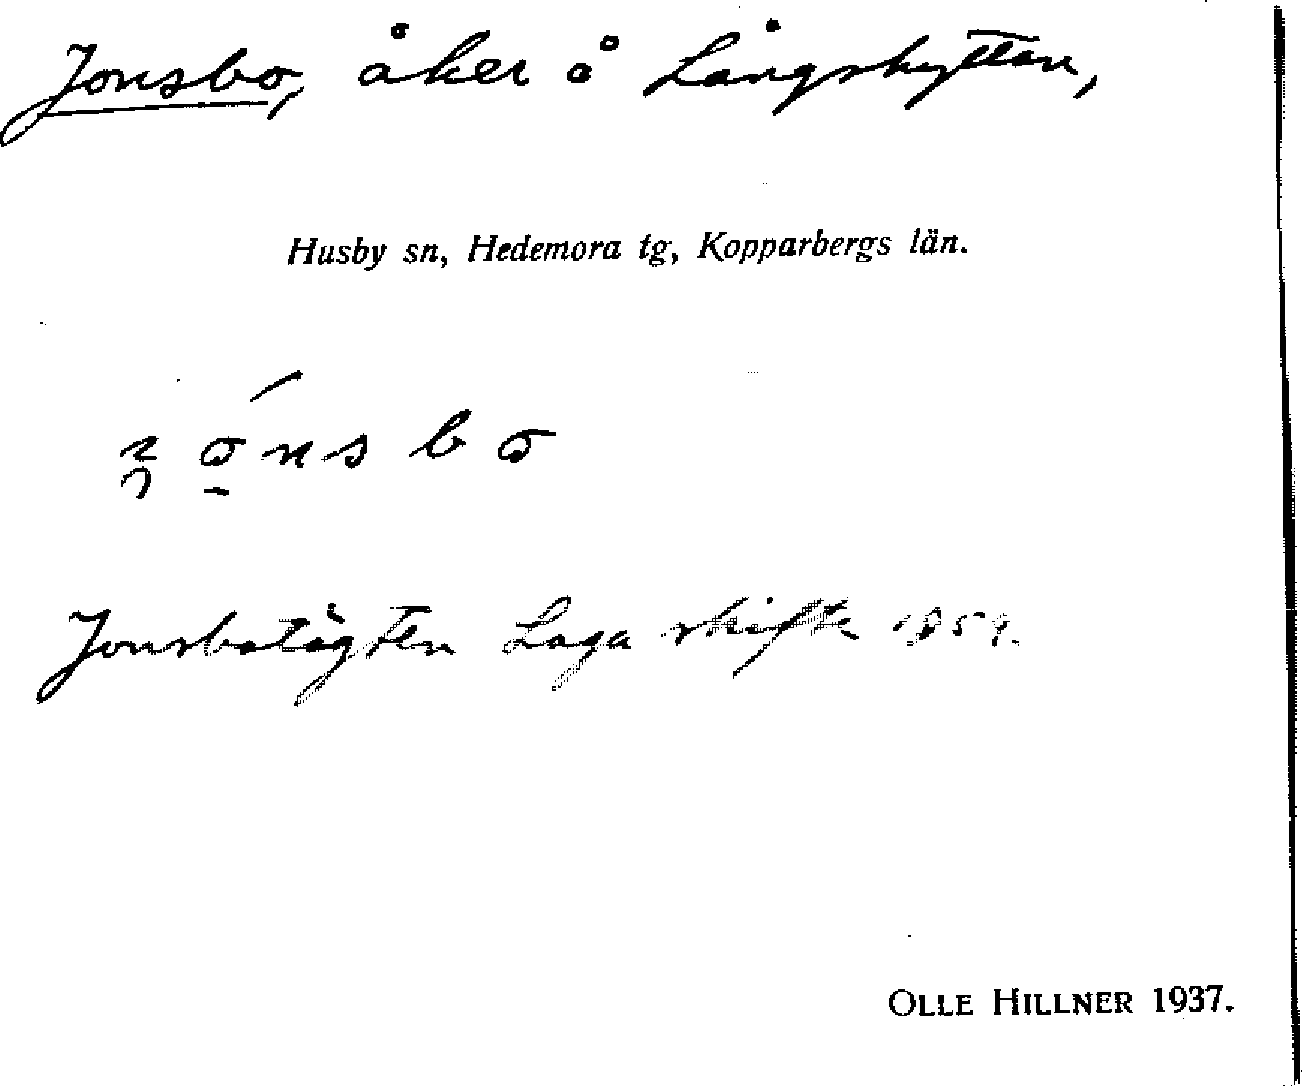 Jonsbo, åker å Långshyttan,
Husby sn, Hedemora tg, Kopparbergs län.
Jonsbotägten Laga skifte
OLLE HILLNER 1937.